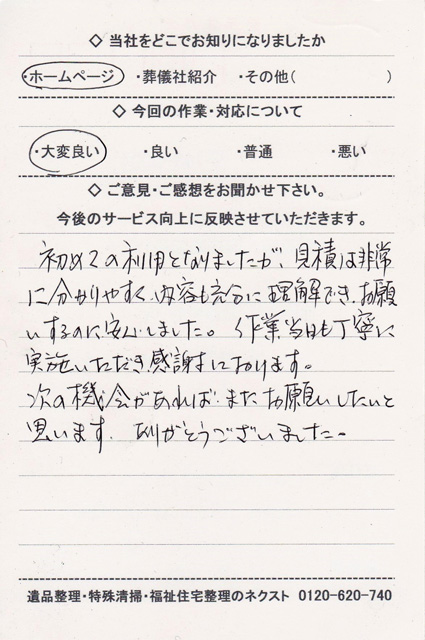 ◇ 当社をどこでお知りになりましたか
・ホームページ ・葬儀社紹介 ・その他( )
◇ 今回の作業・対応について
・大変良い ・良い ・普通 ・悪い
◇ ご意見・ご感想をお聞かせ下さい。
今後のサービス向上に反映させていただきます。
初めての利用となりましたが、見積は非常
に分かりやすく、内容も充分に理解でき、お願
いするのに安心しました。作業当日も丁寧に
実施いただき、感謝しております。
次の機会があれば、またお願いしたいと
思います。ありがとうございました。
遺品整理・特殊清掃・福祉住宅整理のネクスト 0120-620-740